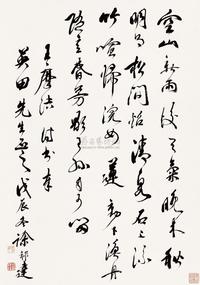 空山新雨後天氣晚来秋
明月松間照清泉石上流
竹喧歸浣女蓮動下漁舟
隨意春芳歇王孫自可留
王摩詰詩書奉
英田先生正之戊辰冬徐邦達